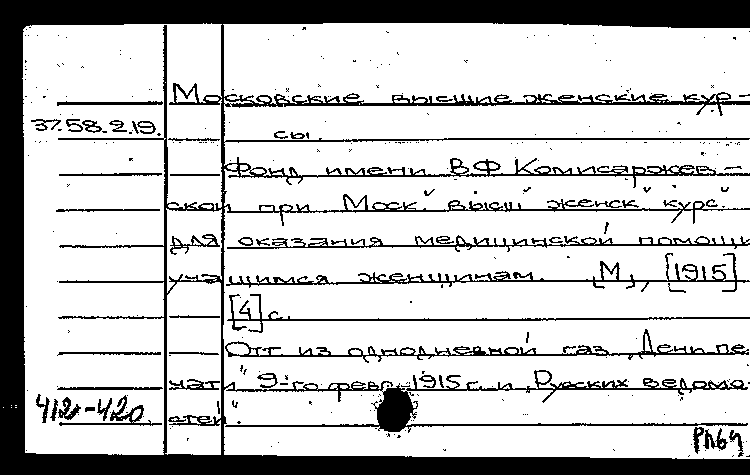 Московские высшие женские кур-
37.58.2.19. сы.
Фонд имени В.Ф Комисаржев-
ской при Моск. высш. женск. курс.
для оказания медицинской помощи
учащимся женщинам. [М], [1915]
[4] с.
Отт из однодневной газ „День пе-
чати" 9-го февр. 1915 г. и „Русских ведомо-
412-420 стей".